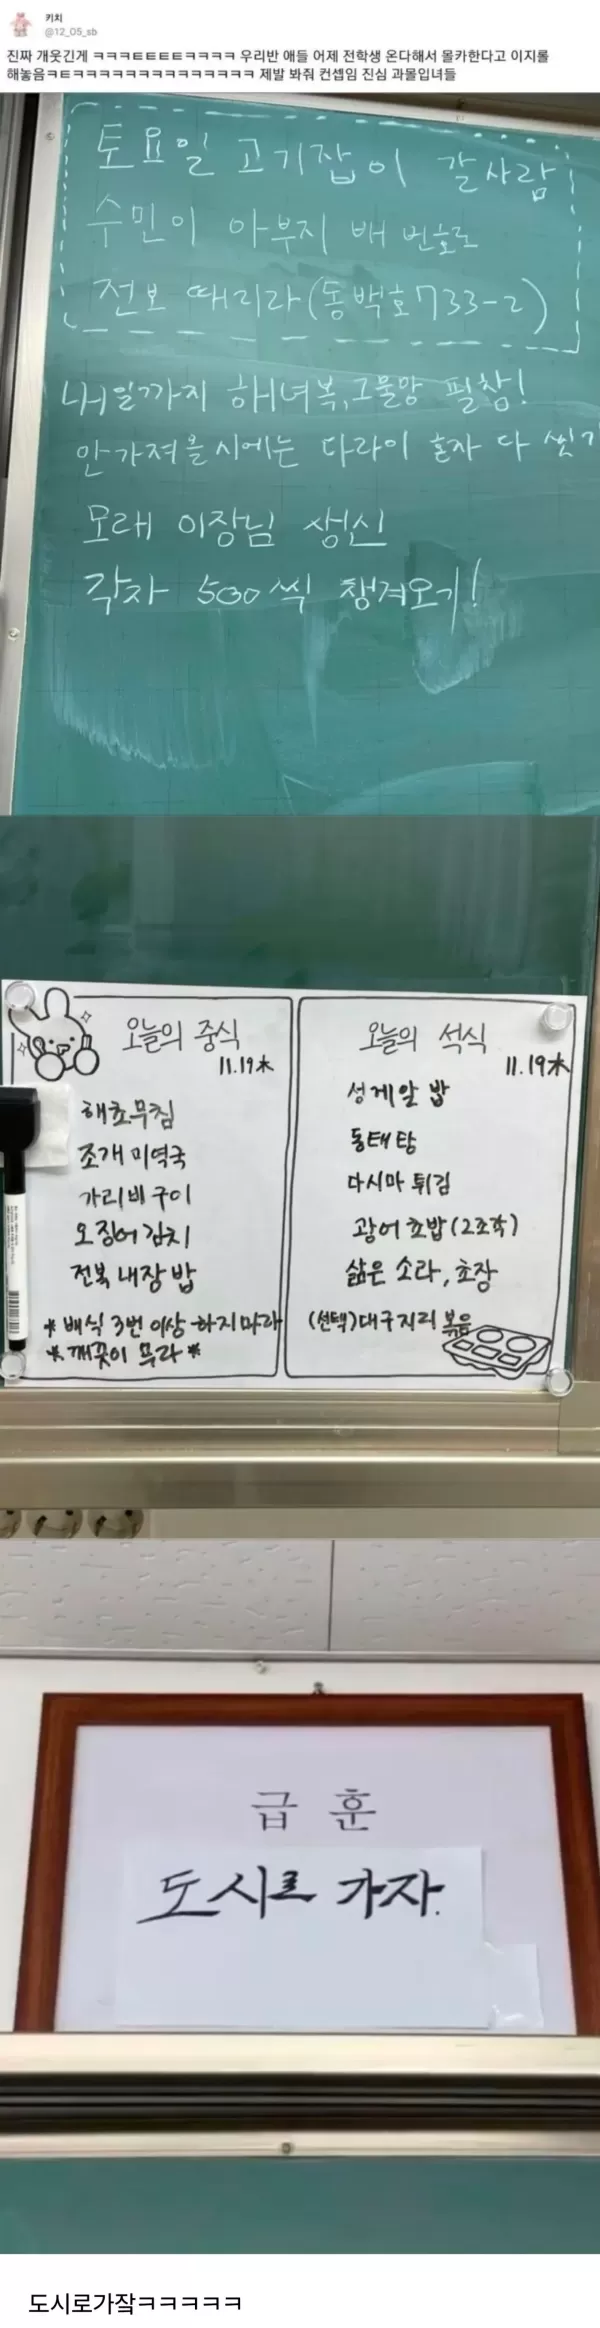 키치
@12_05_sb
진짜 개웃긴게 ㅋㅋㅋㅌㅌㅌㅌㅋㅋㅋㅋ 우리반 애들 어제 전학생 온다해서 몰카한다고 이지롤
해놓음ㅋㅌㅋㅋㅋㅋㅋㅋㅋㅋㅋㅋㅋㅋㅋㅋ 제발 봐줘 컨셉임 진심 과몰입녀들
토요일 고기잡이 갈사람
수민이 아부지 배 번호로
전보 때리라(동백호733-2)
내일까지 해녀복,그물망 필참!
안가져올시에는 다라이 혼자 다 씻기
모래 이장님 생신
각자 500씩 챙겨오기!
오늘의 중식
11.19木
해초무침
조개미역국
가리비구이
오징어김치
전복내장밥
*배식 3번 이상 하지마라
*깨끗이 무라*
오늘의 석식
11.19木
성게알 밥
동태탕
다시마 튀김
광어초밥(2조각)
삶은 소라, 초장
(선택)대구지리 볶음
급 훈
도시로 가자.
도시로가잨ㅋㅋㅋㅋㅋ